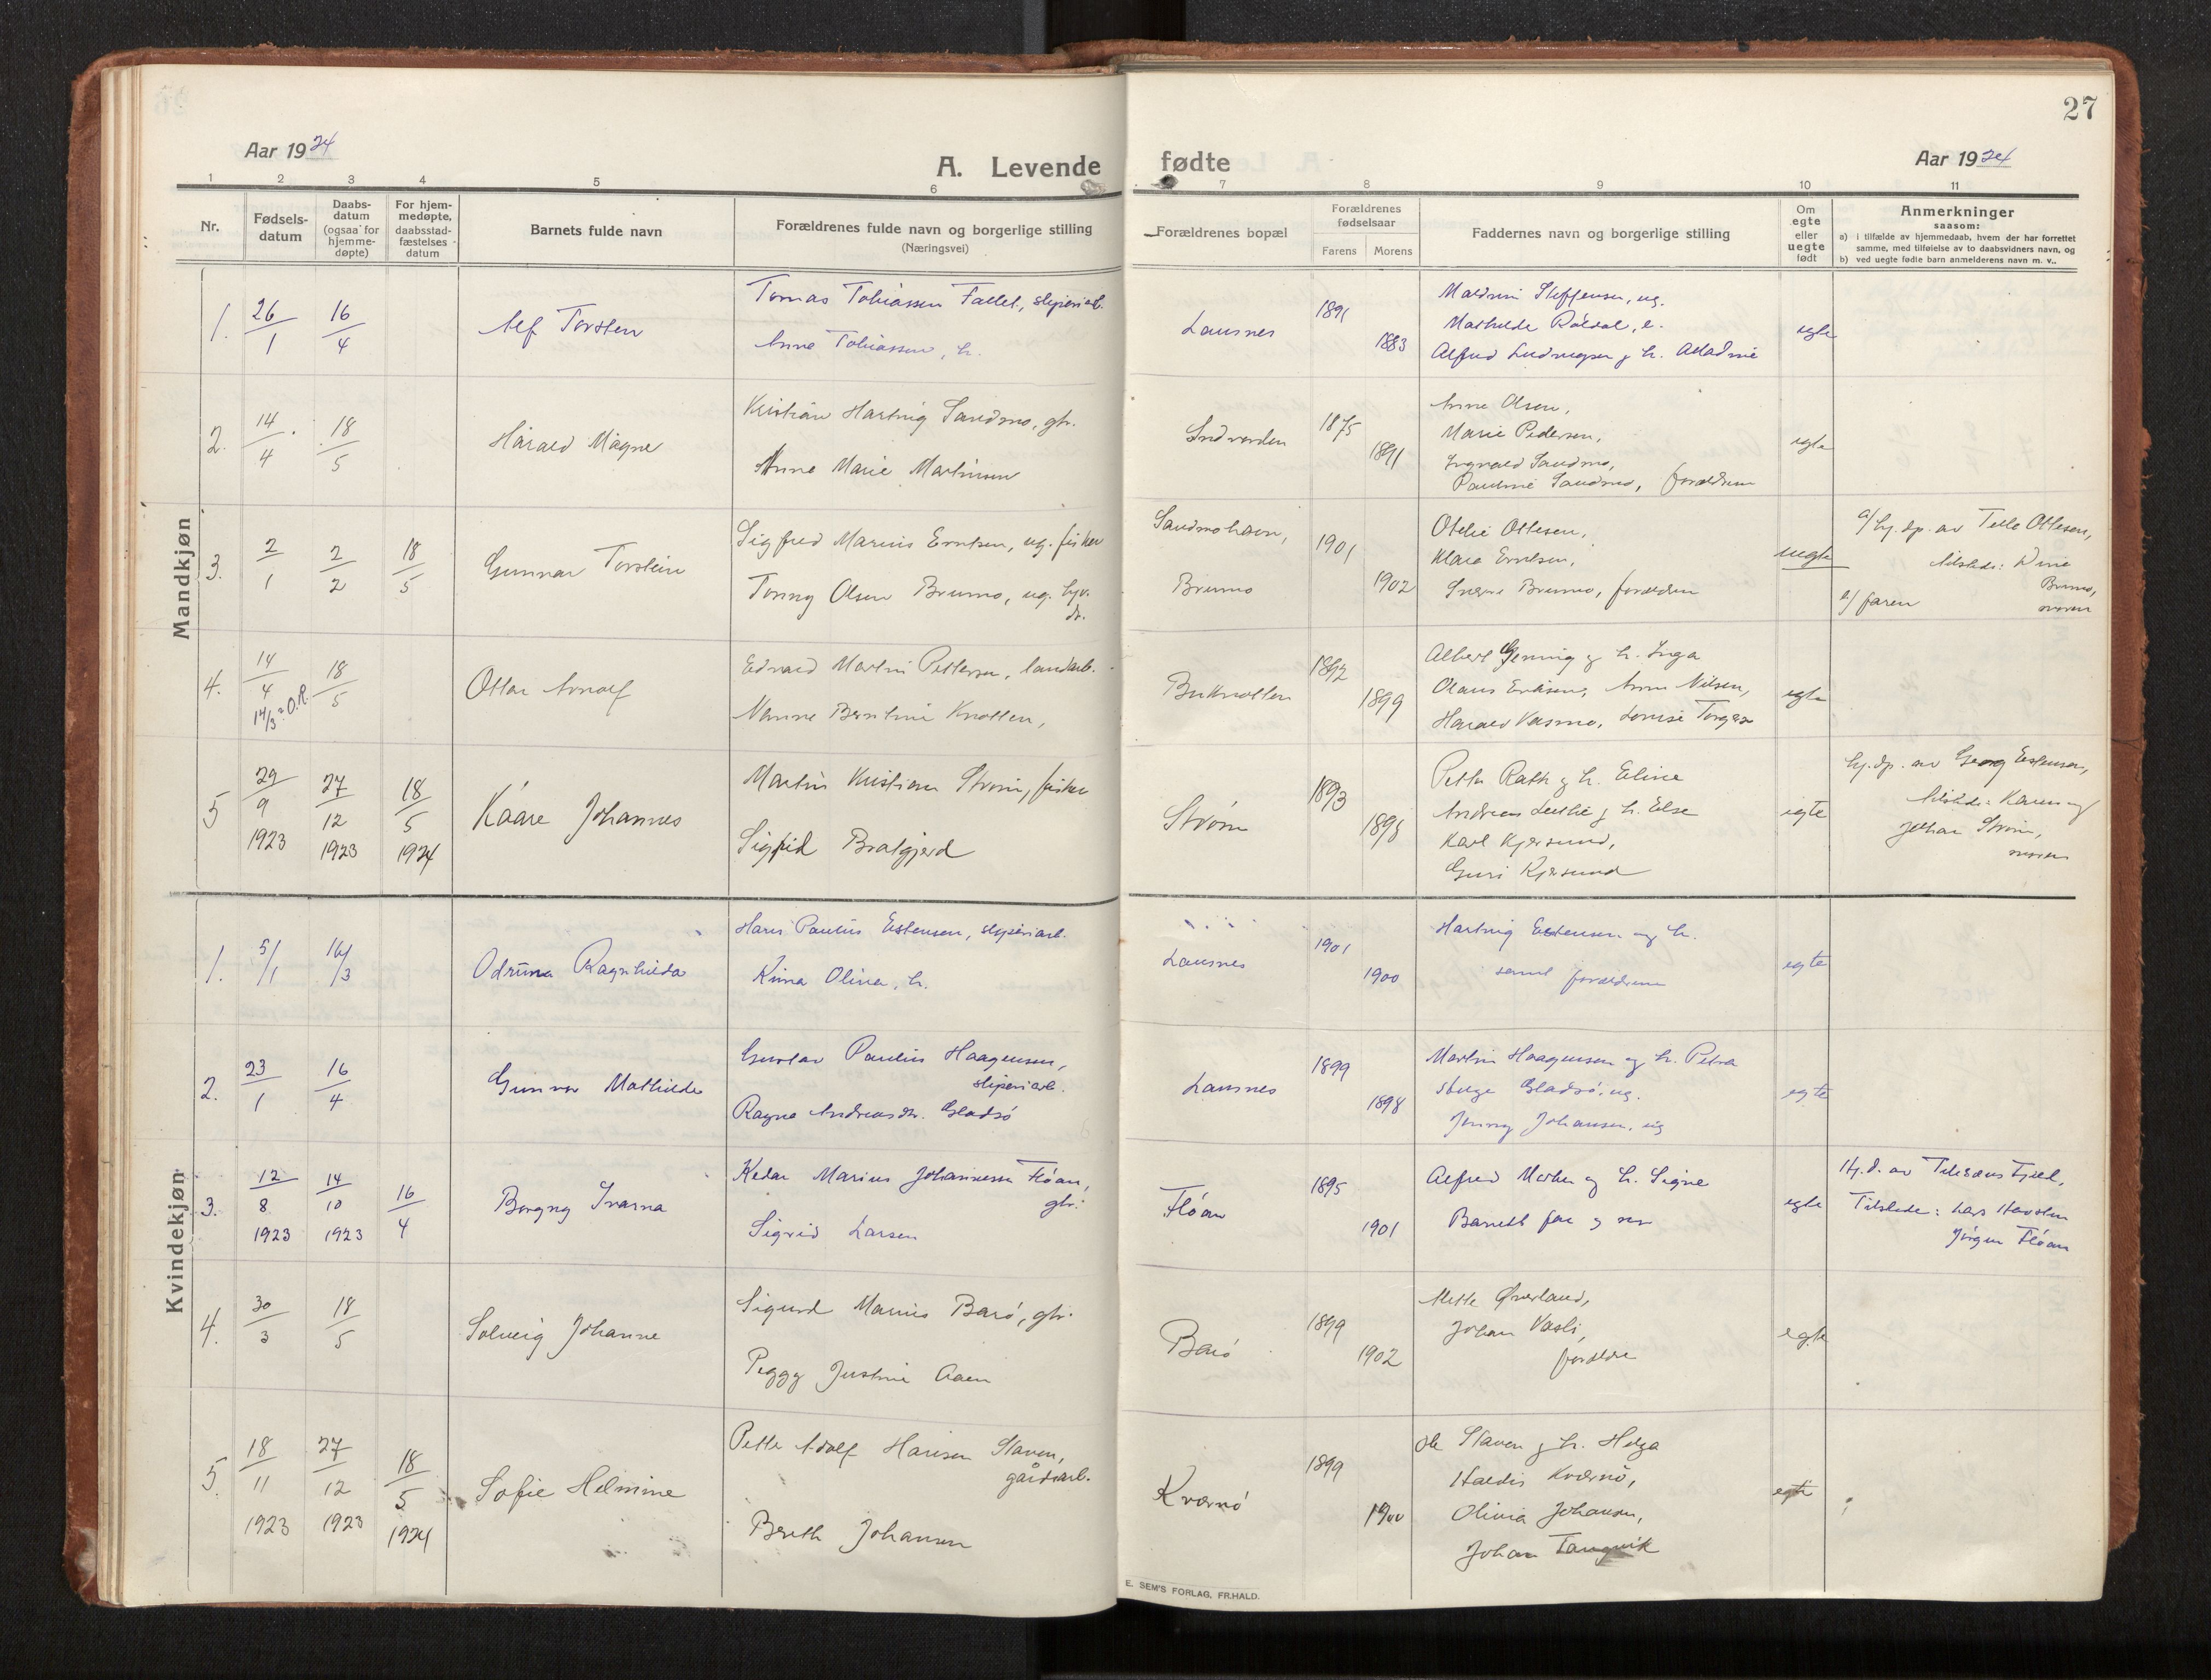 27
Aar 1924
A. Levende
fødte
Aar 1924
1 2 3 4 5 6 7 8 9 10 11
Nr.
Fødsels-
datum
Daabs-
datum
(ogsaa for
hjemme-
døpte)
For hjem-
medøpte,
daabsstad-
fæstelses
datum
Barnets fulde navn
Forældrenes fulde navn og borgerlige stilling
(Næringsvei)
Forældrenes bopæl
Forældrenes
fødselsaar
Farens Morens
Faddernes navn og borgerlige stilling
Om
egte
eller
uegte
født
Anmerkninger
saasom:
a) i tilfælde av hjemmedaab, hvem der har forrettet
samme, med tilføielse av to daabsvidners navn, og
b) ved uegte fødte barn anmelderens navn m. v..
Mandkjøn
1. 26/1 16/4 Alf Torsten
Tomas Tobiassen Fallet, sliperiarb.
Anna Tobiassen, h.
Lausnes 1891 1883
Steffensen, ug.
Mathilde Røldal, e.
Alfred Ludvigsen og h.
egte
2. 14/4 18/5 Harald Magne
Kristian Hartvig Sandmo, gbr.
Anna Marie Martinsen
1875 1891
Anne Olsen,
Marie Pedersen,
Ingvald Sandmo,
Pauline Sandmo, forældrene
egte
3. 2/1 2/2 18/5 Gunnar Torstein
Sigfred Marius Erntsen, ug. fisker
Tonny Olsen Brumo, ug. hjv.
dr.
Sandmohavn,
Brumo
1901 1902
Otelie Ottesen,
Klara Erntsen,
Brumo, forældrene
uegte
a/ hj.dp. av Ottesen,
tilstede: Dina
Brumo,
moren
a/ faren
4. 14/4 14/3? O.R. 18/5 Ottar Arnolf
Edvard Martin Pettersen, landarb.
Nanna Berntine Knotten,
Buknotten 1892 1899
Albert Gjenning og h. Inga
Olaus Eriksen, Anna Nilsen,
Harald Vasmo, Lovise Torgers
egte
5 29/9 1923 27/12 1923 18/5 1924 Kåare Johannes
Martin Kristian Strøm, fisker
Sigfrid Bratgjerd
Strøm 1893 1898
Petter Rath og h. Eline
Andreas og h. Else
Karl Kjersund,
Guri Kjersund
egte
hj.dp. av Georg Estensen,
tilstede: Karen og
Johan Strøm,
moren
Kvindekjøn
1. 5/1 16/3 Odruna Ragnhilda
Hans Paulus Estensen, sliperiarb.
Kinna Oliva, h.
Lausnes 1901 1900
Hartvig Estensen og h.
samt forældrene
egte
2. 23/1 16/4 Gunvor Mathilde
Gustav Paulus Haagensen,
sliperiarb.
Ragna Andreasdr. Gladsø
Lausnes 1899 1898
Martin Haagensen og h. Petra
Gladsø, ug.
Jenny Johansen, ug
egte
3. 12/8 1923 14/10 1923 16/4 Borgny Ivarna
Kedar Marius Johannessen Fløan,
gbr.
Sigrid Larsen
Fløan 1895 1901
Alfred Morken og h. Signe
Barnets far og mor
egte
Hj.d. av Fjeld,
Tilstede: Lars Havsten
Jørgen Fløan
4. 30/3 18/5 Solveig Johanne
Sigurd Marius Barø, gbr.
Peggy Justine Aaen
Barø 1899 1902
Mette Øverland,
Johan Vasli,
forældre
egte
5. 18/11 1923 27/12 1923 18/5 1924 Sofie Helmine
Petter Adolf Hansen Staven,
gårdsarb.
Bereth Johansen
Kvernø 1899 1900
Ole Staven og h. Helga
Haldis Kvernø,
Olivia Johansen,
Johan Tangvik
egte
E. SEM'S FORLAG, FR.HALD.